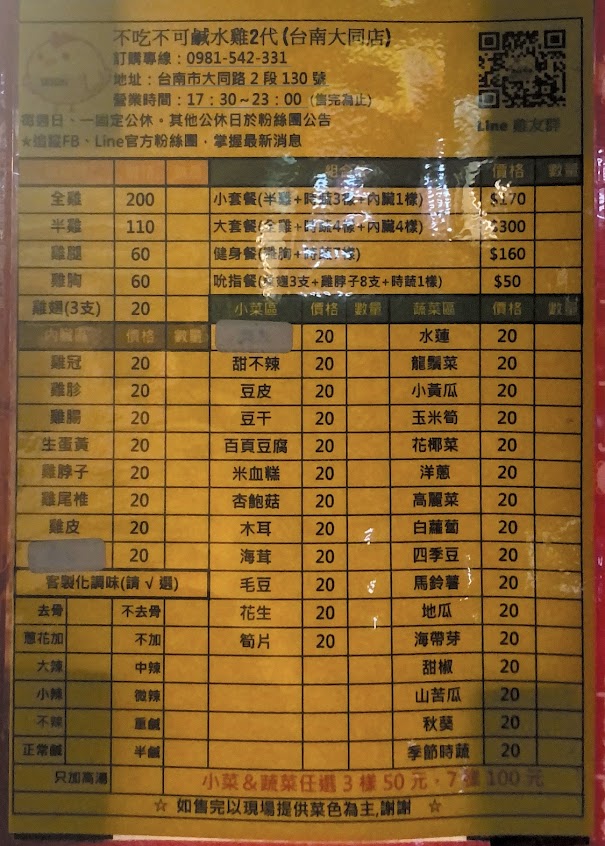 不吃不可鹹水雞2代(台南大同店)
訂購專線：0981-542-331
地址：台南市大同路 2 段 130 號
營業時間：17：30～23：00 (售完為止)
每週日、一固定公休。其他公休日於粉絲團公告
★追蹤FB、Line官方粉絲團，掌握最新消息
Line 雞友群
組合 價格 數量
全雞 200 小套餐(半雞+時蔬3樣+內臟1樣) $170
半雞 110 大套餐(全雞+時蔬4樣+內臟4樣) $300
雞腿 60 健身餐(雞胸+時蔬1樣) $160
雞胸 60 吮指餐(雞翅3支+雞脖子8支+時蔬1樣) $50
雞翅(3支) 20 小菜區 價格 數量 蔬菜區 價格 數量
內臟區 價格 數量 20 水蓮 20
雞冠 20 甜不辣 20 龍鬚菜 20
雞胗 20 豆皮 20 小黃瓜 20
雞腸 20 豆干 20 玉米筍 20
生蛋黃 20 百頁豆腐 20 花椰菜 20
雞脖子 20 米血糕 20 洋蔥 20
雞尾椎 20 杏鮑菇 20 高麗菜 20
雞皮 20 木耳 20 白蘿蔔 20
20 海茸 20 四季豆 20
客製化調味(請 √ 選) 毛豆 20 馬鈴薯 20
去骨 不去骨 花生 20 地瓜 20
蔥花加 不加 筍片 20 海帶芽 20
大辣 中辣 甜椒 20
小辣 微辣 山苦瓜 20
不辣 重鹹 秋葵 20
正常鹹 半鹹 季節時蔬 20
只加高湯 小菜＆蔬菜任選 3 樣 50 元，7 樣 100 元
☆ 如售完以現場提供菜色為主,謝謝 ☆